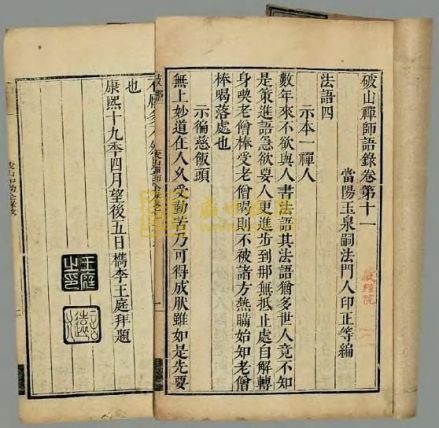 破山禪師語錄卷第十一
當陽玉泉嗣法門人印正等編
法語四
示本一禪人
數年來不欲與人書法語其法語猶多世人竟不知
是策進語急欲要人更進步到那無抵止處自解轉
身喫老僧棒受老僧喝則不被諸方熱瞞始知老僧
棒喝落處也
示徧慈飯頭
無上妙道在人久受勤苦乃可得成肰雖如是先要
也
康熙十九季四月望後五日檇李王庭拜題
王庭之印